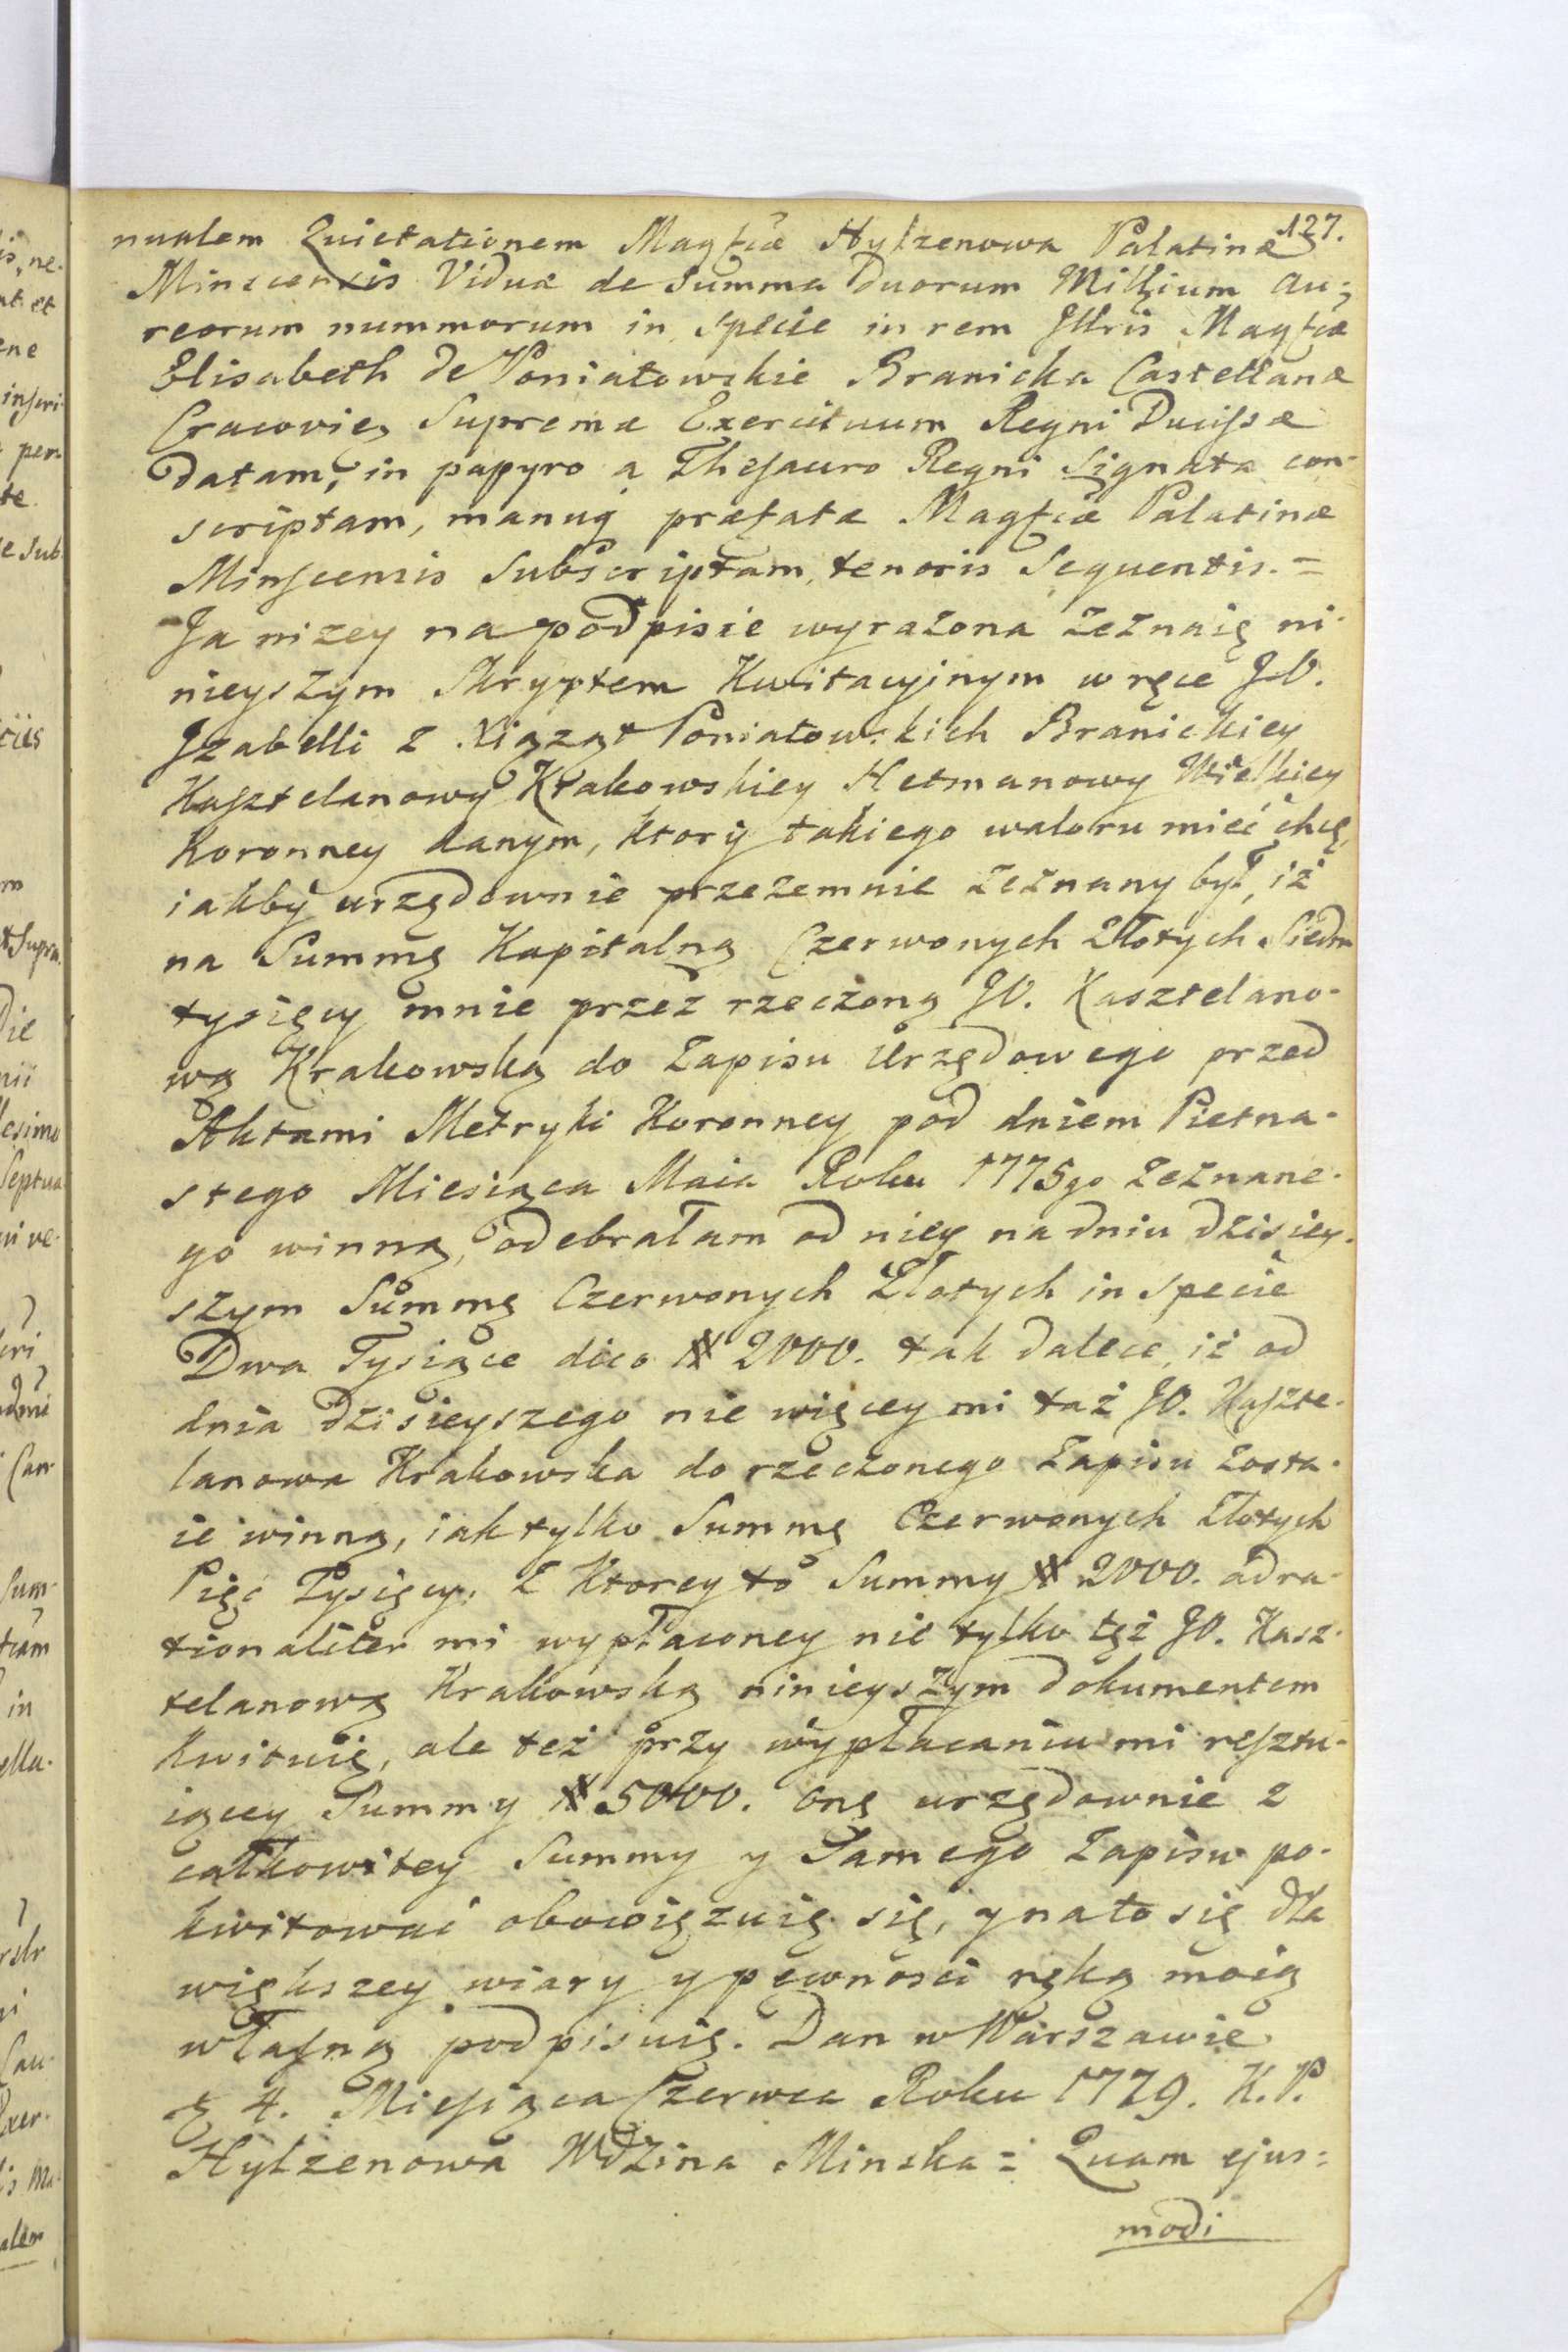 127.
nualem Quietationem Magfcæ Hylzenowa Palatinæ
Minscensis Viduæ de Summa Duorum Millium Au=
reorum nummorum in specie in rem Jllris Magfcæ
Elisabeth de Poniatowskie Branicka Castellanæ
Cracovien, Supremæ Exercituum Regni Ducissæ
datam, in papyro a Thesauro Regni Signata con-
scriptam, manuq præfatæ Magfcæ Palatinæ
Minscensis Subscriptam, tenoris Sequentis. =
Ja nizey na podpisie wyrazona zeznaię ni-
nieyszym Skryptem Kwitacyjnym w ręce JO.
Jzabelli z Xiążąt Poniatowskich Branickiey
Kasztelanowy Krakowskiey Hetmanowy Wielkiey
Koronney danym, ktory takiego waloru mieć chcę,
iakby urzędownie przezemnie zeznany był, iż
na Summę Kapitalną Czerwonych Złotych Siedm
tysięcy mnie przez rzeczoną JO. Kasztelano-
wą Krakowską do Zapisu Urzędowego przed
Aktami Metryki Koronney pod dniem Pietna-
stego Miesiąca Maia Roku 1775go zeznane-
go winną, odebrałam od niey na dniu dzisiey-
szym Summę Czerwonych Złotych in specie
Dwa Tysiące dico # 2000. tak dalece, iż od
dnia dzisieyszego nie więcey mi taż JO. Kaszte-
lanowa Krakowska do rzeczonego Zapisu zosta-
ie winną, iak tylko Summę Czerwonych Złotych
Pięć Tysięcy. Z Ktorey to Summy # 2000. adra-
tionaliter mi wypłaconey nie tylko tęż JO. Kasz-
telanową Krakowską ninieyszym dokumentem
kwituię, ale też przy wypłacaniu mi resztu-
iącey Summy # 5000. onę urzędownie z
całkowitey Summy y Samego Zapisu po-
kwitować obowięzuię się, y na to się dla
większey wiary y pewności ręką moią
własną podpisuię. Dan w Warszawie
4. Miesiąca Czerwca Roku 1779. K. P.
Hylzenowa WdZina Minska = Quam ejus=
modi